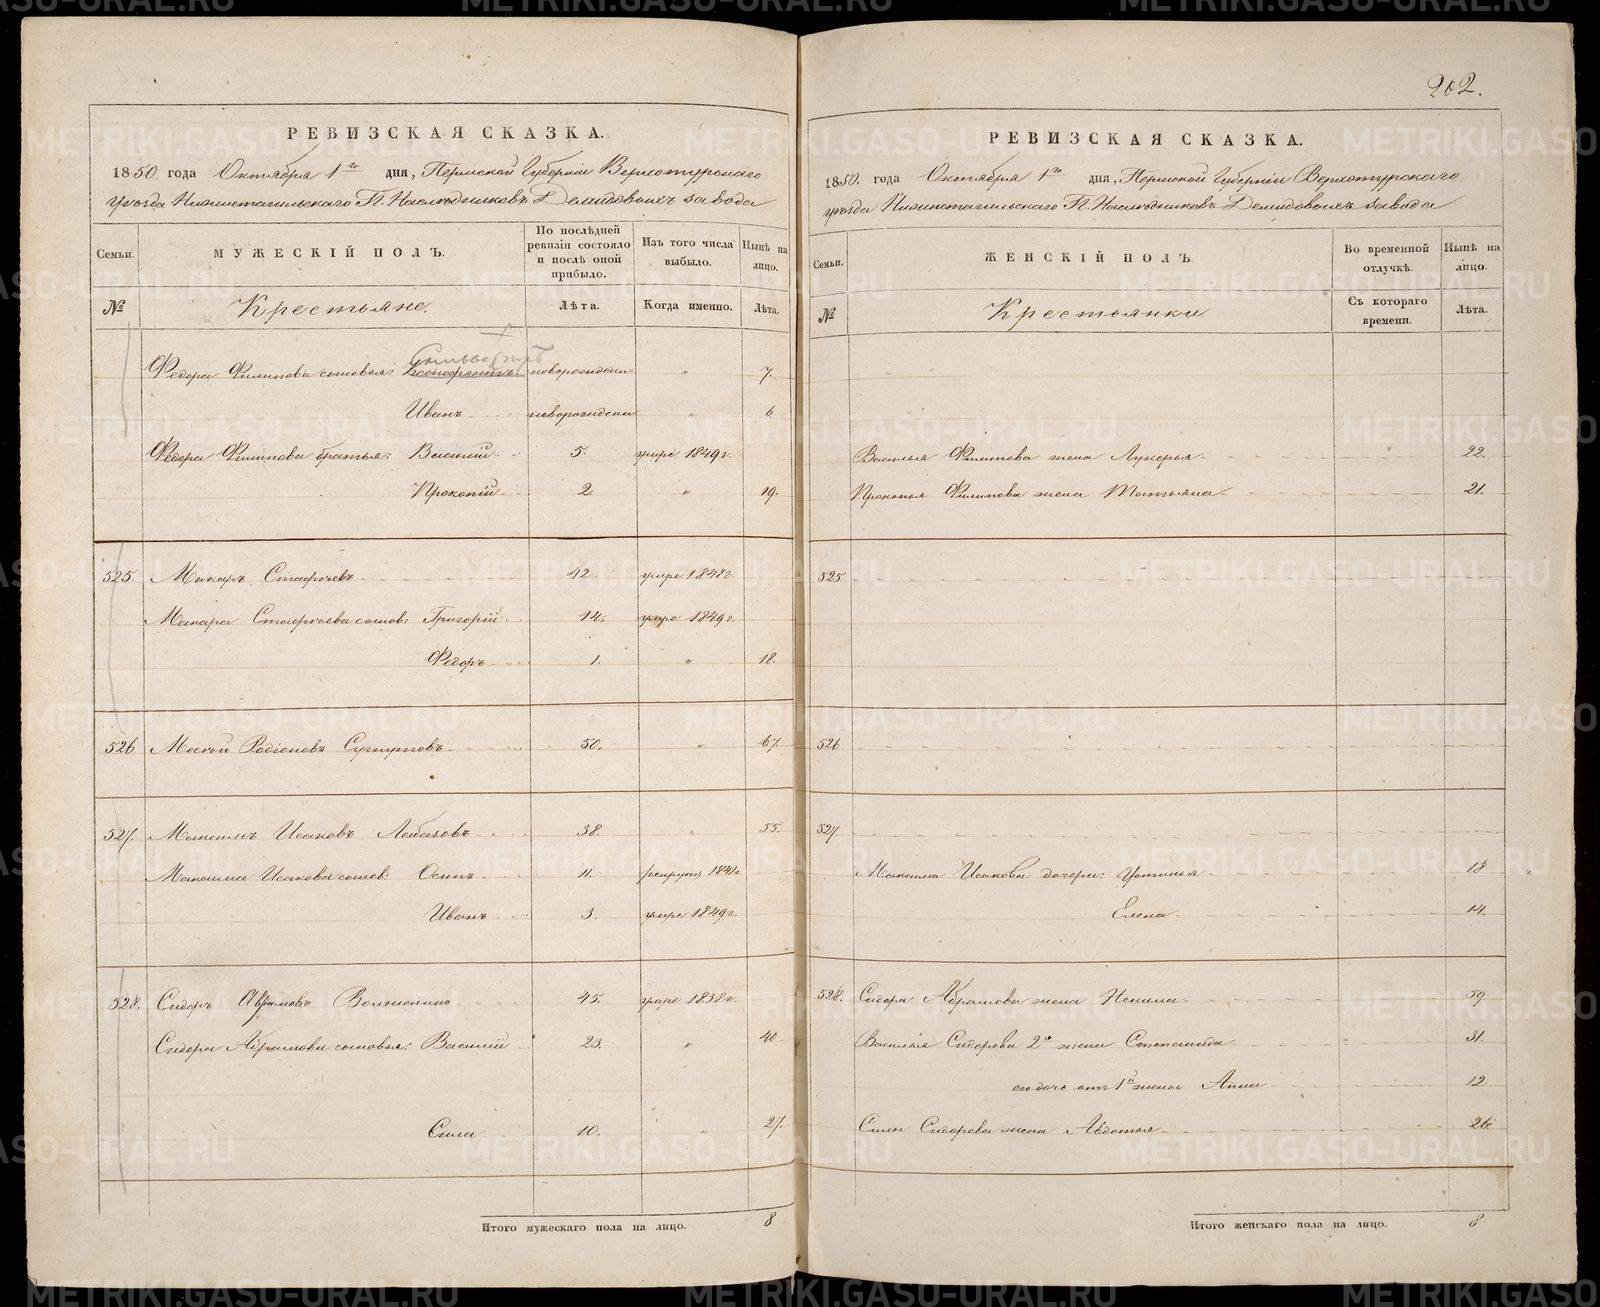 202.
РЕВИЗСКАЯ СКАЗКА.
1850 года Октября 1го дня, Пермской Губернии Верхотурского
уѣзда Нижнетагильского П. Наслѣдниковъ Демидовыхъ завода
Семьи.
МУЖЕСКІЙ ПОЛЪ.
По послѣдней ревизіи состояло и послѣ оной прибыло.
Изъ того числа выбыло.
Нынѣ на лицо.
№
Крестьяне.
Лѣта.
Когда именно.
Лѣта.
Сильвестръ
Федора Филипова сыновья: Ксенофонтъ новорожден „ 7.
Иванъ новорожден „ 6.
Федора Филипова братья: Василій 5. умре 1849 г.
Прокопій 2. „ 19.
525. Макаръ 42. умре 1848 г.
Макара сынов: Григорій 14. умре 1849 г.
Федоръ 1. „ 18.
526 Родіоновъ 50. „ 67.
527. Максимъ Исаковъ 38. „ 55.
Максима Исакова сынов: Осипъ 11. рекрут 1841 г.
Иванъ 3. умре 1849 г.
528. Сидоръ Абрамовъ 45. умре 1838 г.
Сидора Абрамова сыновья: Василій 23. „ 40
Сила 10. „ 27.
Итого мужескаго пола на лицо. 8
РЕВИЗСКАЯ СКАЗКА.
1850. года Октября 1го дня, Пермской Губерніи Верхотурского
уѣзда Нижнетагильского П. Наслѣдниковъ Демидовыхъ завода
Семьи.
ЖЕНСКІЙ ПОЛЪ
Во временной отлучкѣ.
Нынѣ на лицо.
№
Крестьянки
Съ котораго времени.
Лѣта.
Василья Филипова жена Лукерья 22.
Прокопья Филипова жена Татьяна 21.
525
526
527.
Максима Исакова дочери: Устинья 18
Елена 14.
528. Сидора Абрамова жена Ненила 59
Василья Сидорова 2я жена Степанида 31.
его дочь отъ 1й жены Анна 12.
Силы Сидорова жена Авдотья 26.
Итого женскаго пола на лицо. 8
METRIKI.GASO-URAL.RU